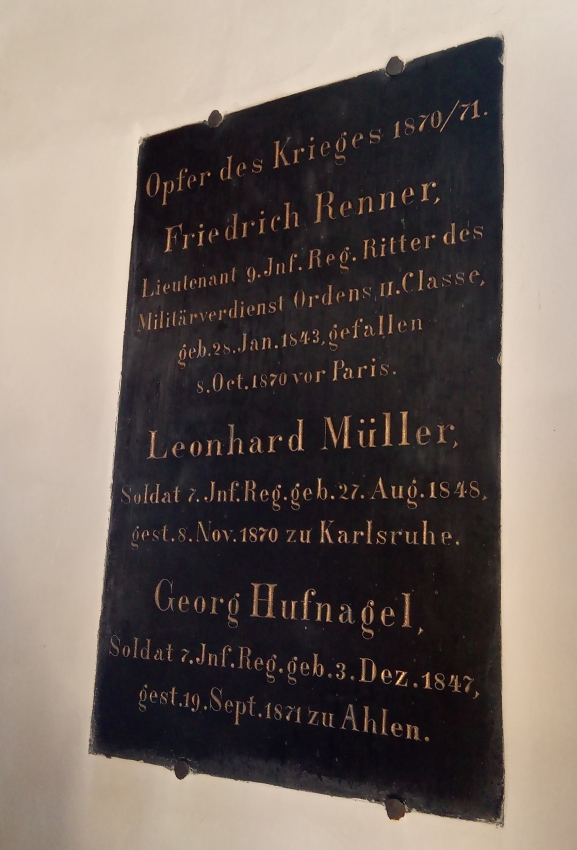 Opfer des Krieges 1870/71.
Friedrich Renner,
Lieutenant 9. Jnf. Reg. Ritter des
Militärverdienst Ordens II. Classe,
geb. 28. Jan. 1843, gefallen
8. Oct. 1870 vor Paris.
Leonhard Müller,
Soldat 7. Jnf. Reg. geb. 27. Aug. 1848,
gest. 8. Nov. 1870 zu Karlsruhe.
Georg Hufnagel,
Soldat 7. Jnf. Reg. geb. 3. Dez. 1847,
gest. 19. Sept. 1871 zu Ahlen.